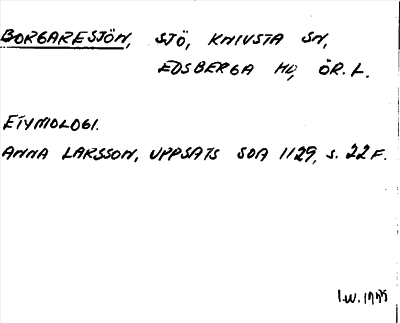 BORGARESJÖN, SJÖ, KNIVSTA SN,
EDSBERGA HD, ÖR. L.
ETYMOLOGI.
ANNA LARSSON, UPPSATS SOA 1129, S. 22 F.
I.W.